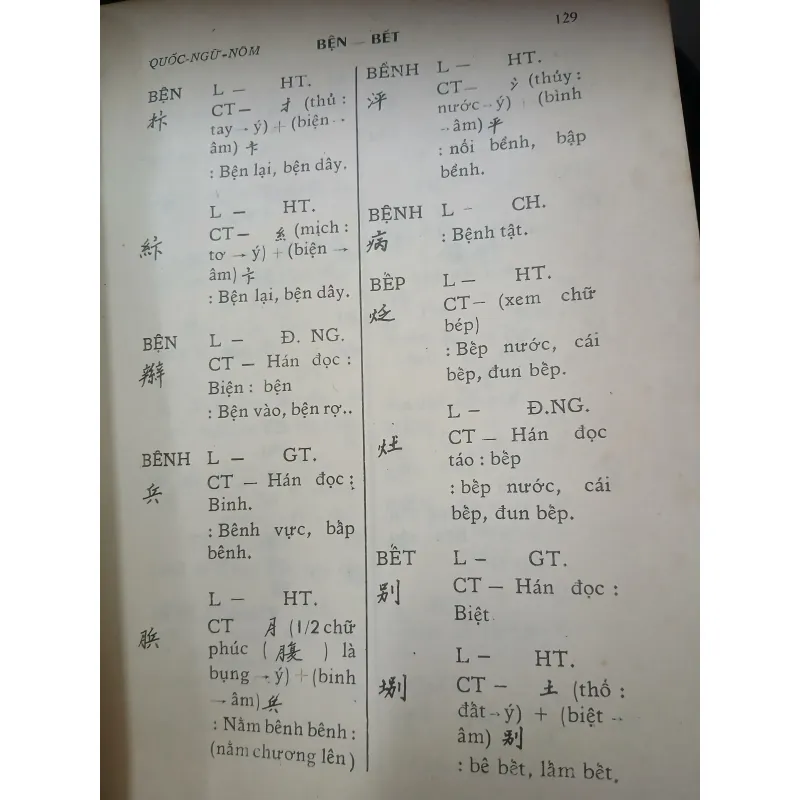 QUỐC-NGỮ-NÔM BỆN — BẾT 129
BỆN L — HT.
抃 CT — 扌 (thủ :
tay → ý) + (biện →
âm) 卞
: Bện lại, bện dây.
L — HT.
CT — 糹 (mịch :
tơ → ý) + (biện →
âm) 卞
: Bện lại, bện dây.
BỆN L — Đ. NG.
辮 CT — Hán đọc :
Biện : bện
: Bện vào, bện rợ..
BÊNH L — GT.
兵 CT — Hán đọc :
Binh.
: Bênh vực, bắp
bênh.
L — HT.
CT 月 (1/2 chữ
phúc ( 腹 ) là
bụng → ý) + (binh
→ âm) 兵
: Nằm bênh bênh :
(nằm chương lên)
BỀNH L — HT.
泙 CT — 氵 (thủy :
nước → ý) + (bình
→ âm) 平
: nổi bềnh, bập
bềnh.
BỆNH L — CH.
病 : Bệnh tật.
BẾP L — HT.
CT — (xem chữ
bép)
: Bếp nước, cái
bếp, đun bếp.
L — Đ.NG.
灶 CT — Hán đọc
táo : bếp
: bếp nước, cái
bếp, đun bếp.
BẾT L — GT.
别 CT — Hán đọc :
Biệt
L — HT.
CT — 土 (thổ :
đất → ý) + (biệt →
âm) 别
: bê bết, lấm bết.